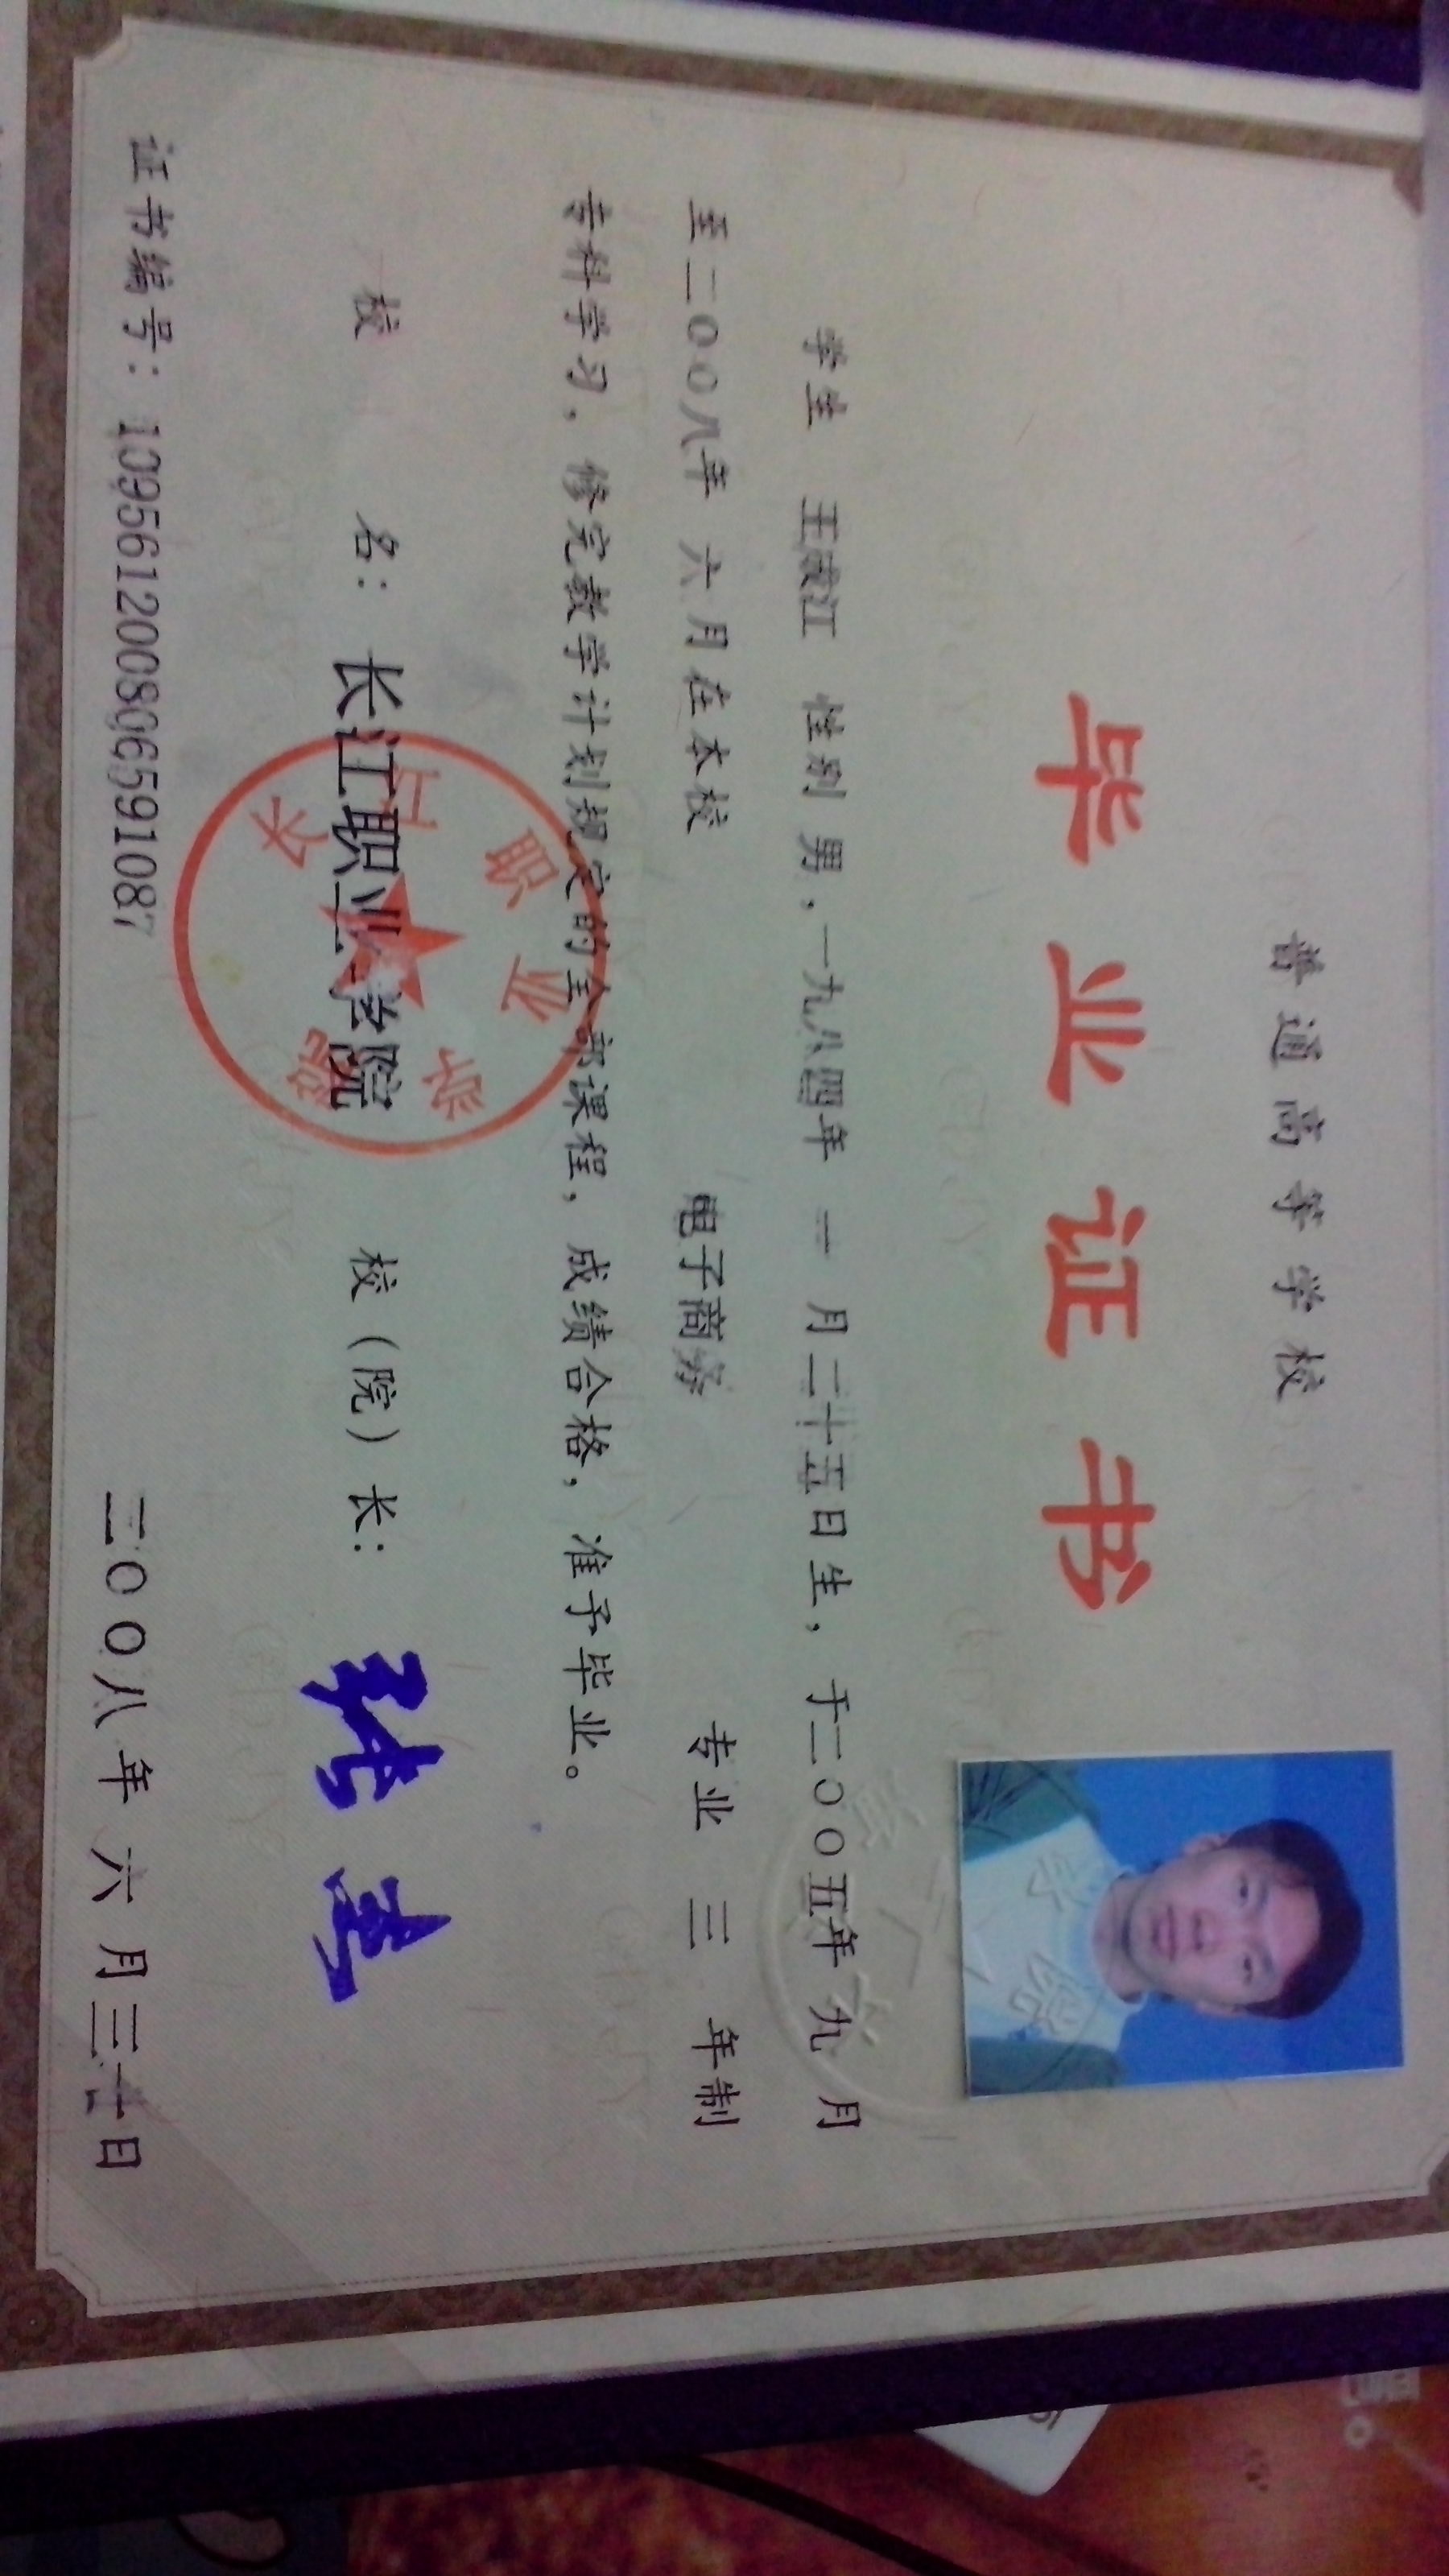 普通高等学校
毕业证书
学生 王成江 性别 男，一九八四年 一 月二十五日生，于二〇〇五年 九 月
至二〇〇八年 六 月在本校 电子商务 专业 三 年制
专科学习，修完教学计划规定的全部课程，成绩合格，准予毕业。
校 名：长江职业学院 校（院）长：
长江职业学院
证书编号：109561200806591087
二〇〇八年 六 月三十日